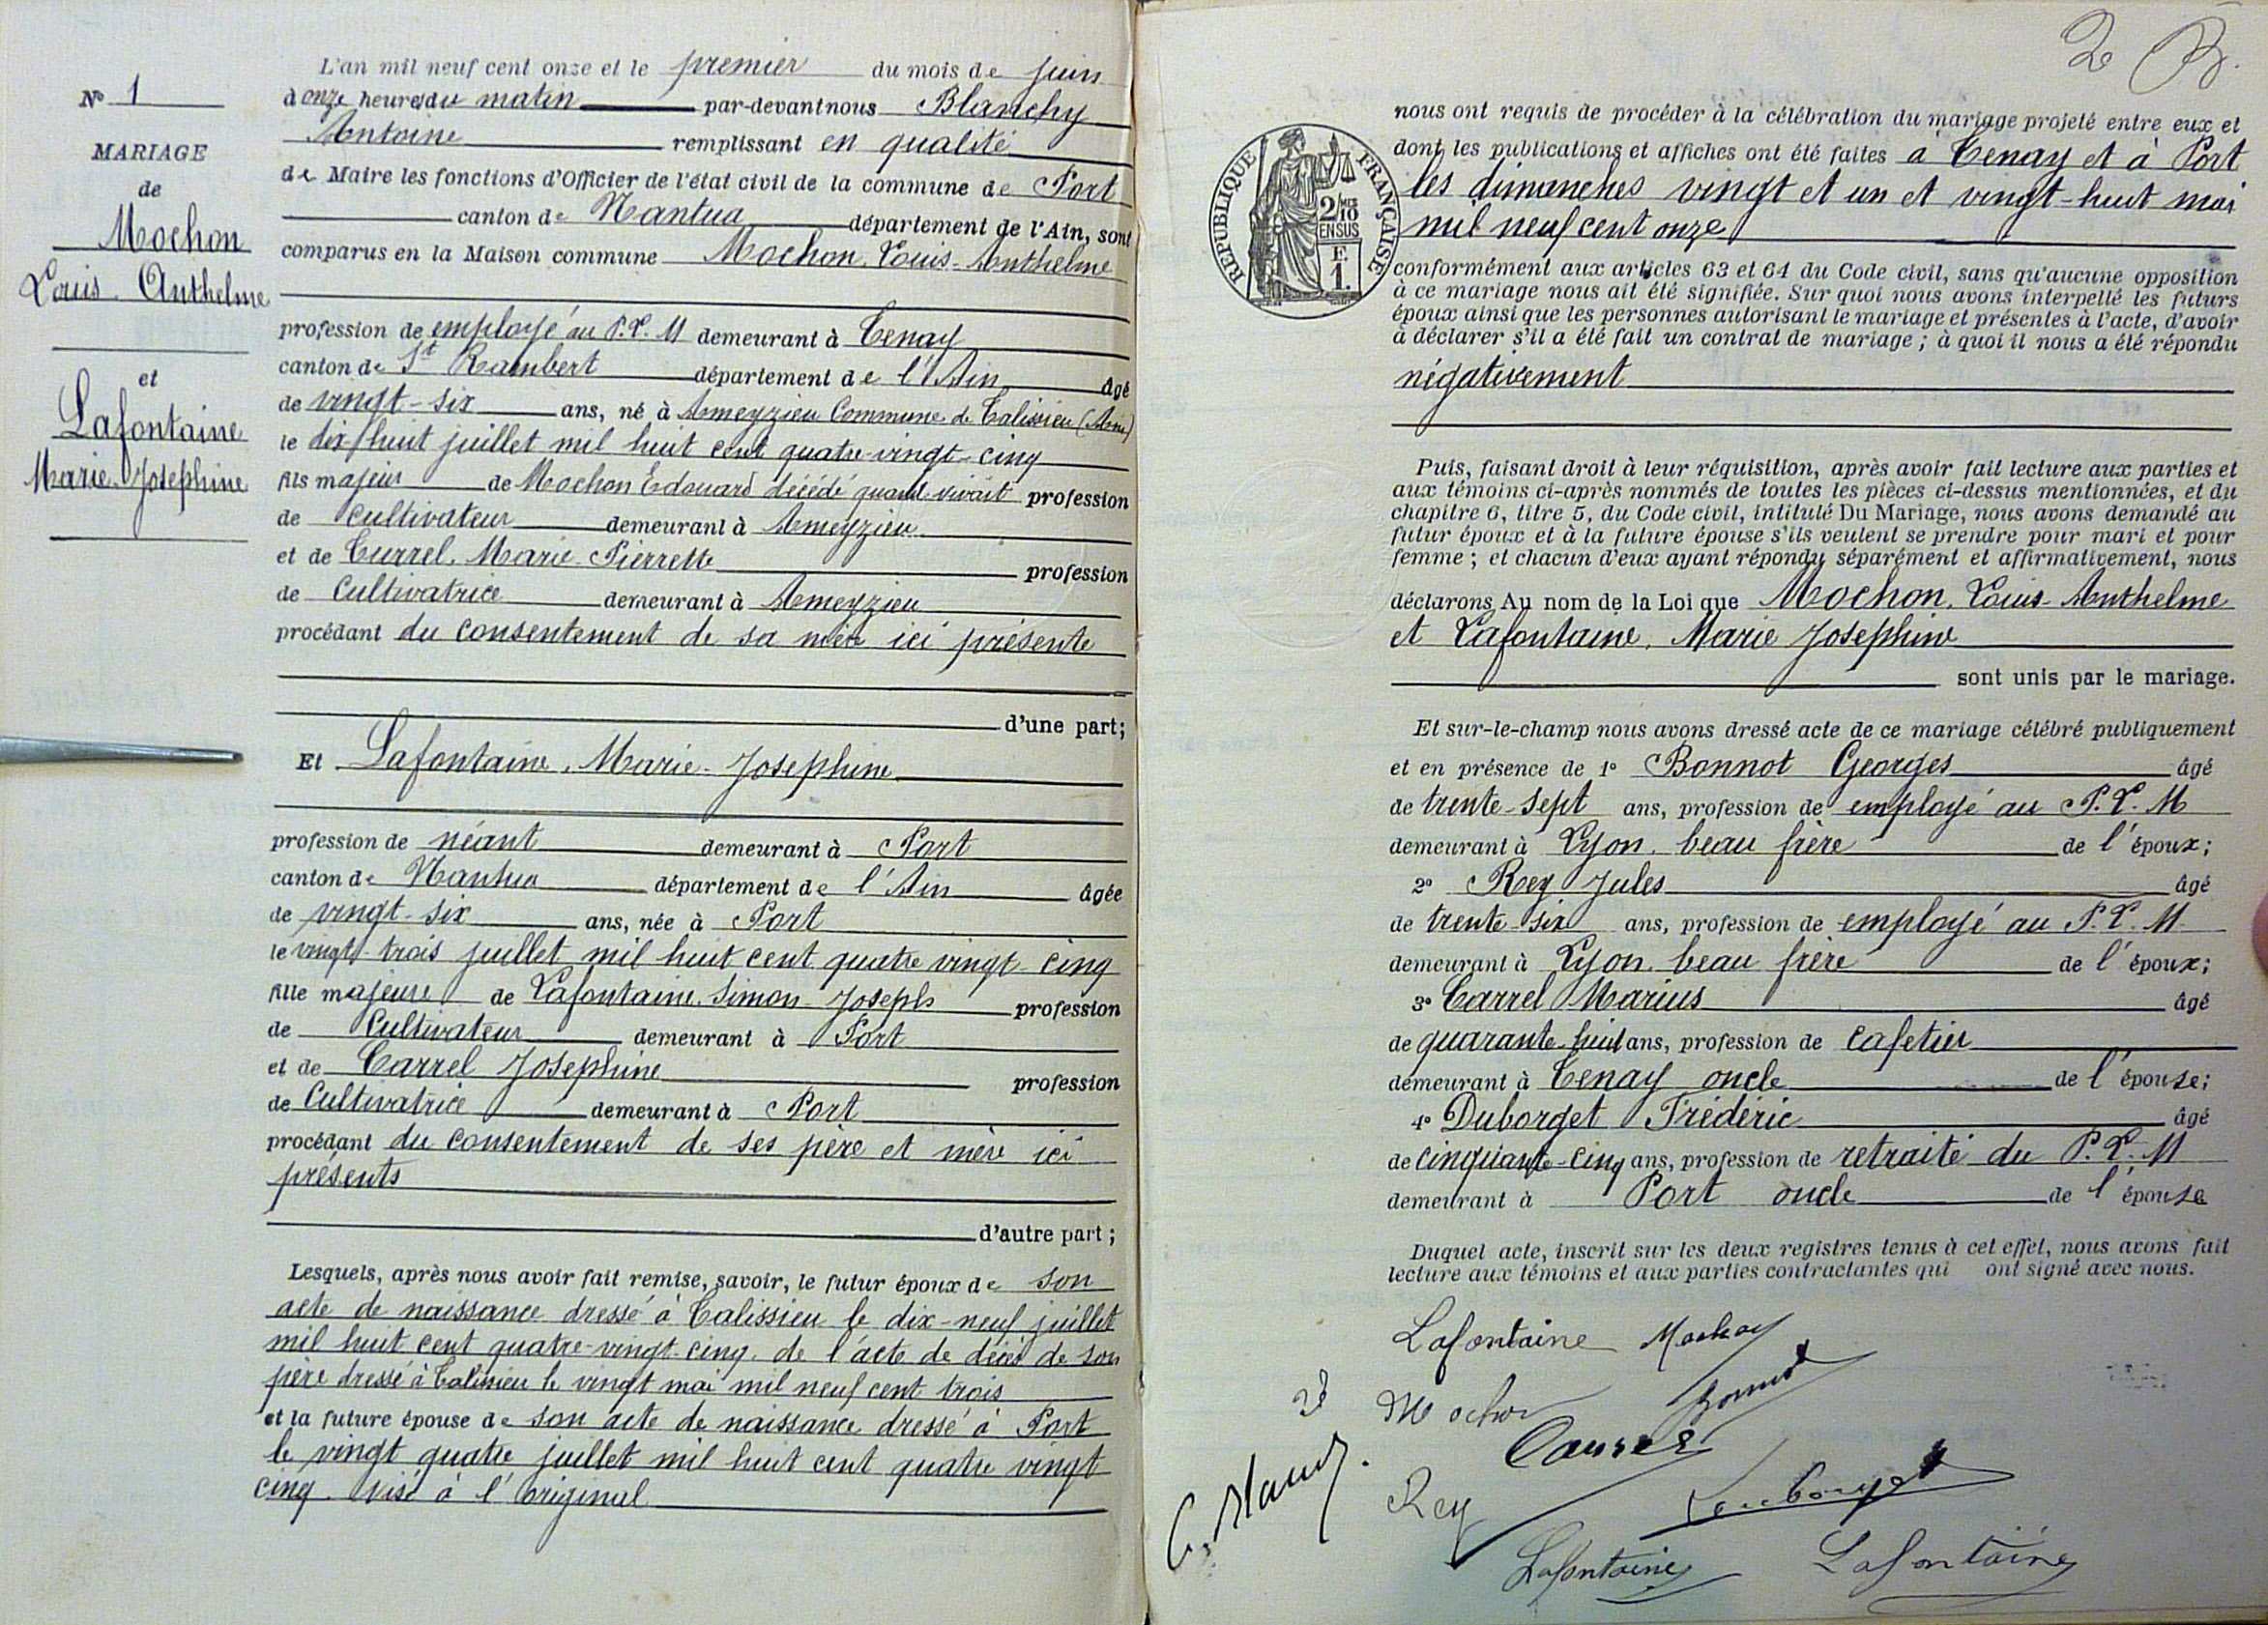 N° 1
MARIAGE
de
Mochon
Louis Anthelme
et
Lafontaine
Marie Josephine
L'an mil neuf cent onze et le premier du mois de juin
à onze heures du matin par-devant nous Blanchy
Antoine remplissant en qualité
de Maire les fonctions d'Officier de l'état civil de la commune de Port
canton de Nantua département de l'Ain, sont
comparus en la Maison commune Mochon, Louis-Anthelme
profession de employé au P.L.M demeurant à Tenay
canton de St Rambert département de l'Ain âgé
de vingt-six ans, né à Ameyzieu Commune de Talissieu (Ain)
le dix huit juillet mil huit cent quatre-vingt-cinq
fils majeur de Mochon Edouard décédé quand vivait profession
de cultivateur demeurant à Ameyzieu
et de Currel. Marie-Pierrette profession
de Cultivatrice demeurant à Ameyzieu
procédant du consentement de sa mère ici présente
d'une part;
Et Lafontaine, Marie-Josephine
profession de néant demeurant à Port
canton de Nantua département de l'Ain âgée
de vingt-six ans, née à Port
le vingt-trois juillet mil huit cent quatre vingt cinq
fille majeure de Lafontaine Simon-Joseph profession
de Cultivateur demeurant à Port
et de Carrel Josephine profession
de Cultivatrice demeurant à Port
procédant du consentement de ses père et mère ici
présents
d'autre part;
Lesquels, après nous avoir fait remise, savoir, le futur époux de son
acte de naissance dressé à Talissieu le dix-neuf juillet
mil huit cent quatre-vingt-cinq. de l'acte de décès de son
père dressé à Talissieu le vingt mai mil neuf cent trois
et la future épouse de son acte de naissance dressé à Port
le vingt quatre juillet mil huit cent quatre vingt
cinq. visé à l'original
2e
RÉPUBLIQUE FRANÇAISE
2/10 MES
EN SUS
F.
1.
nous ont requis de procéder à la célébration du mariage projeté entre eux et
dont les publications et affiches ont été faites à Tenay et à Port
les dimanches vingt et un et vingt-huit mai
mil neuf cent onze
conformément aux articles 63 et 64 du Code civil, sans qu'aucune opposition
à ce mariage nous ait été signifiée. Sur quoi nous avons interpellé les futurs
époux ainsi que les personnes autorisant le mariage et présentes à l'acte, d'avoir
à déclarer s'il a été fait un contrat de mariage; à quoi il nous a été répondu
négativement
Puis, faisant droit à leur réquisition, après avoir fait lecture aux parties et
aux témoins ci-après nommés de toutes les pièces ci-dessus mentionnées, et du
chapitre 6, titre 5, du Code civil, intitulé Du Mariage, nous avons demandé au
futur époux et à la future épouse s'ils veulent se prendre pour mari et pour
femme; et chacun d'eux ayant répondu séparément et affirmativement, nous
déclarons Au nom de la Loi que Mochon, Louis-Anthelme
et Lafontaine, Marie Josephine
sont unis par le mariage.
Et sur-le-champ nous avons dressé acte de ce mariage célébré publiquement
et en présence de 1° Bonnot Georges âgé
de trente-sept ans, profession de employé au P.L.M
demeurant à Lyon. beau frère de l'époux;
2° Rey Jules âgé
de trente-six ans, profession de employé au P.L.M.
demeurant à Lyon. beau frère de l'époux;
3° Carrel Marius âgé
de quarante-huit ans, profession de cafetier
demeurant à Tenay oncle de l'épouse;
4° Duborget Frédéric âgé
de cinquante-cinq ans, profession de retraité du P.L.M
demeurant à Port oncle de l'épouse
Duquel acte, inscrit sur les deux registres tenus à cet effet, nous avons fait
lecture aux témoins et aux parties contractantes qui ont signé avec nous.
Lafontaine Mochon
Mochon Bonnot
Rey
Lafontaine Lafontaine